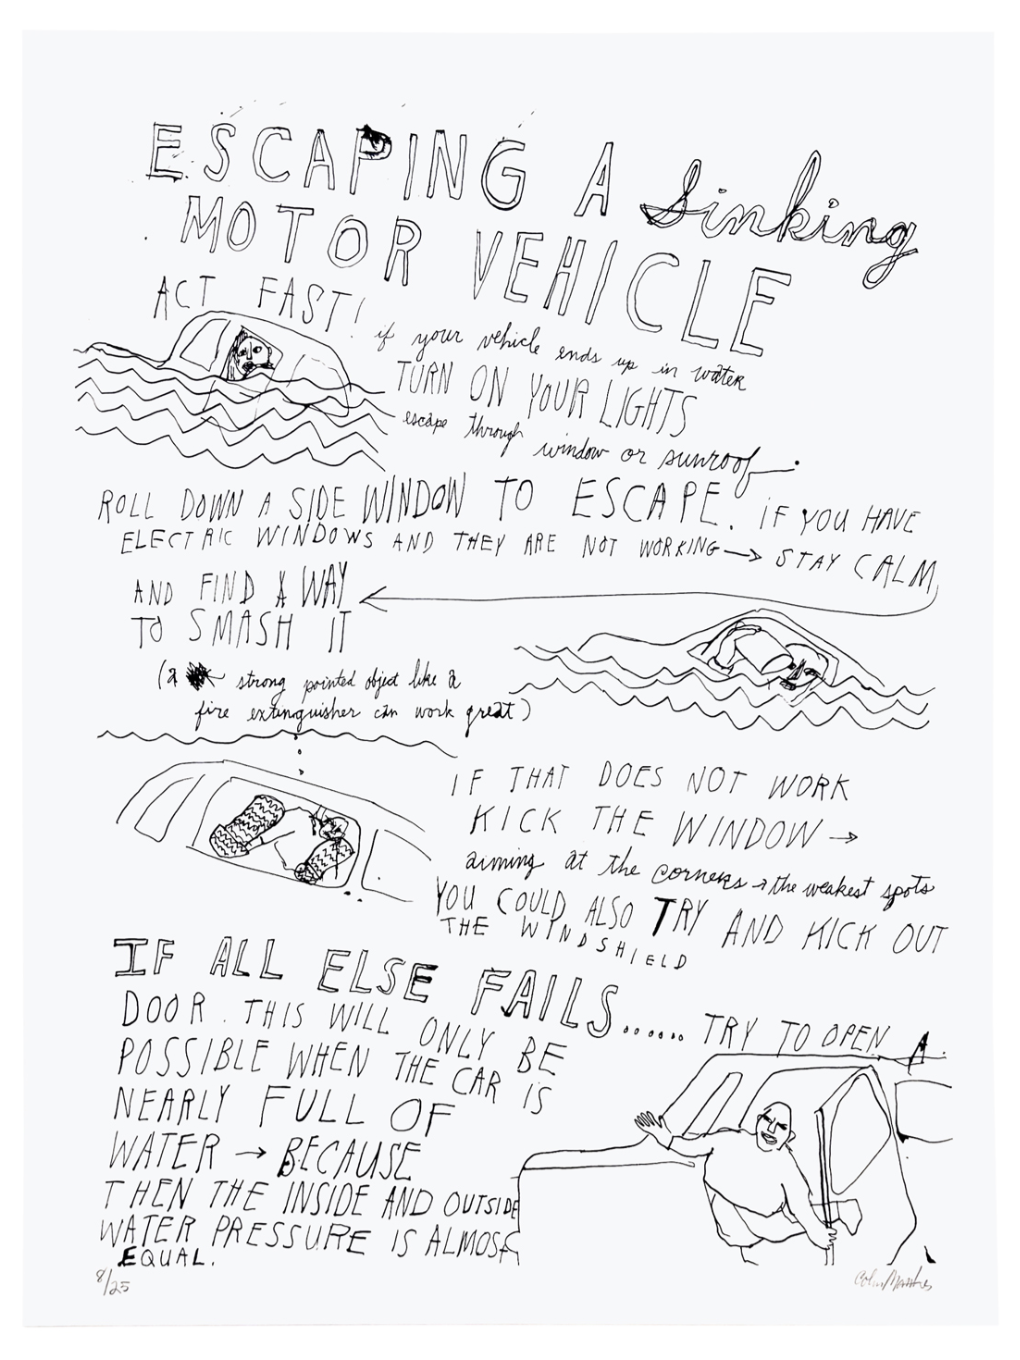 ESCAPING A sinking
MOTOR VEHICLE
ACT FAST!
if your vehicle ends up in water
TURN ON YOUR LIGHTS
escape through window or sunroof.
ROLL DOWN A SIDE WINDOW TO ESCAPE. IF YOU HAVE
ELECTRIC WINDOWS AND THEY ARE NOT WORKING → STAY CALM
AND FIND A WAY
TO SMASH IT
(a strong pointed object like a
fire extinguisher can work great)
IF THAT DOES NOT WORK
KICK THE WINDOW →
aiming at the corners → the weakest spots
YOU COULD ALSO TRY AND KICK OUT
THE WINDSHIELD
IF ALL ELSE FAILS...... TRY TO OPEN A
DOOR. THIS WILL ONLY BE
POSSIBLE WHEN THE CAR IS
NEARLY FULL OF
WATER → BECAUSE
THEN THE INSIDE AND OUTSIDE
WATER PRESSURE IS ALMOST
EQUAL.
8/25